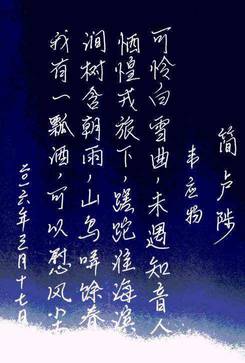 简卢陟
韦应物
可怜白雪曲,未遇知音人
恓惶戎旅下,蹉跎淮海滨
涧树含朝雨,山鸟哢馀春
我有一瓢酒,可以慰风尘
二〇一六年三月十七日